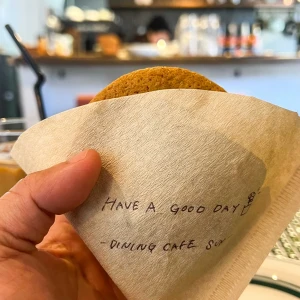 HAVE A GOOD DAY
-DINING CAFE